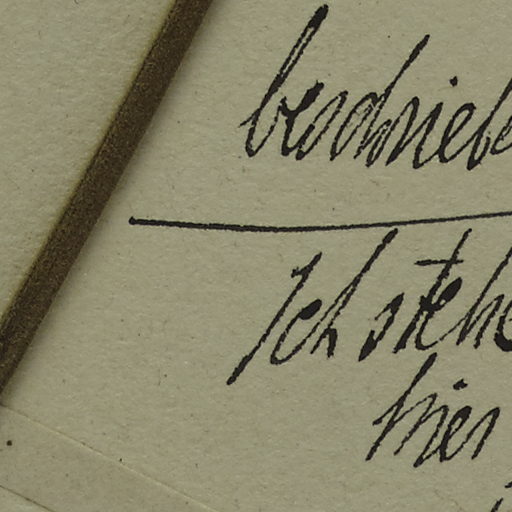 beschriebe
Ich stehe
hier